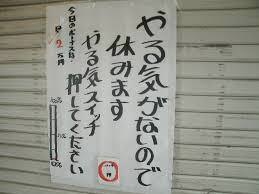 やる気がないので
休みます
やる気スイッチ
押してください
今日のボーナスは
2
万円
100%